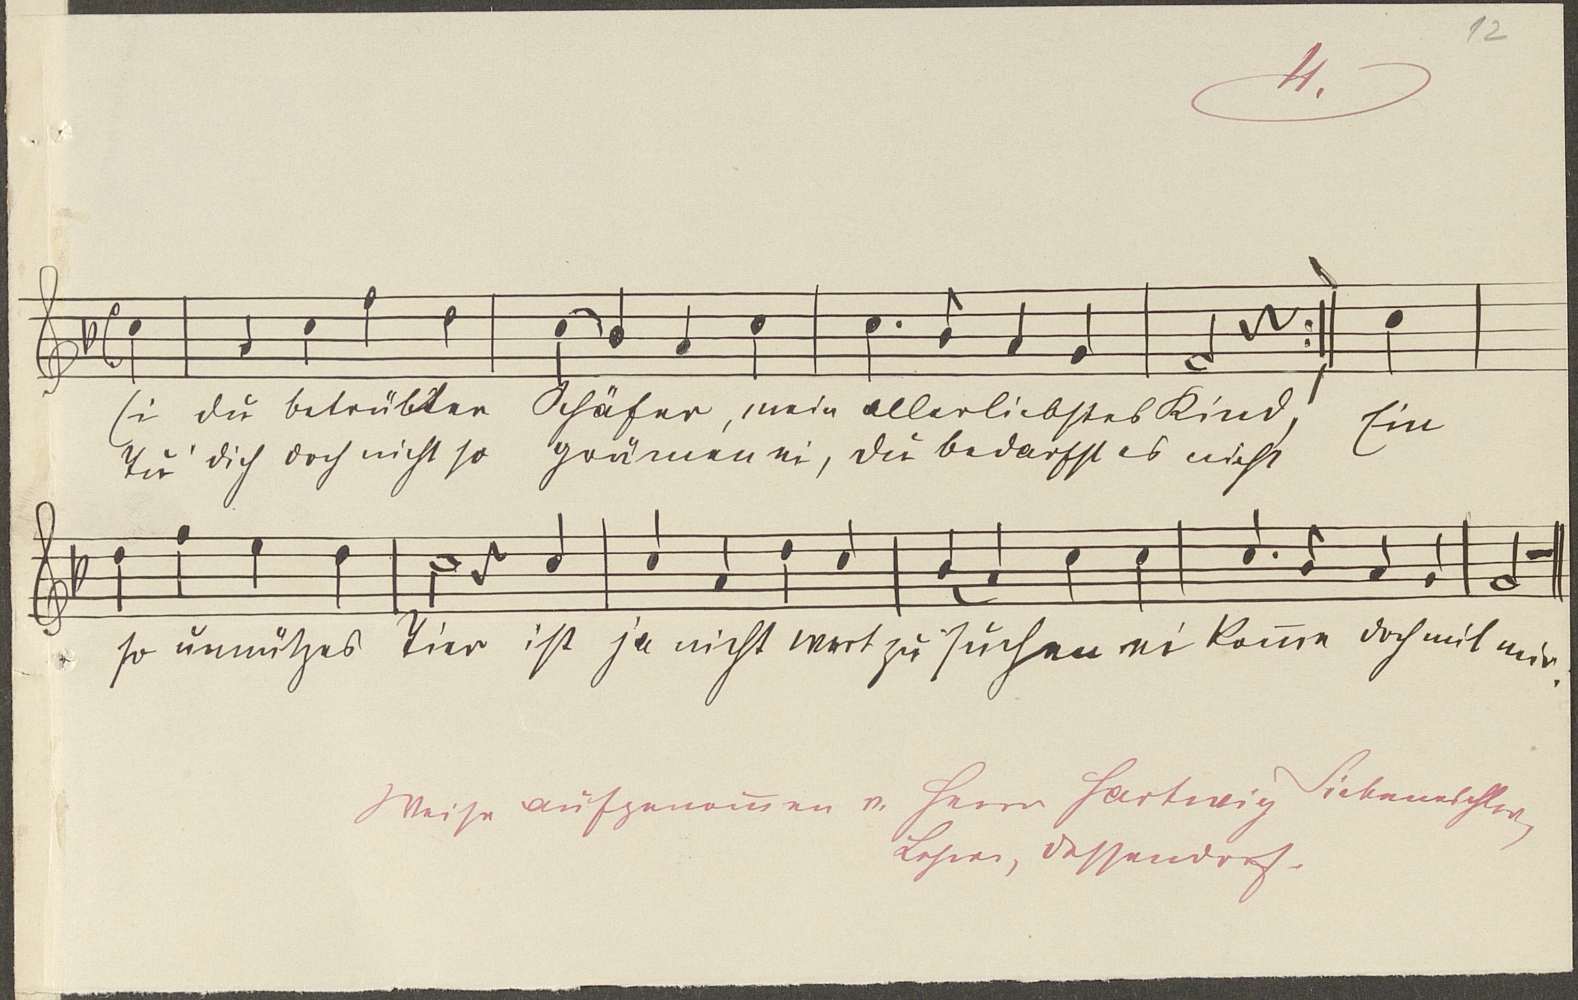 12
4.
Ei du betrübter Schäfer, mein allerliebstes Kind, Ein
Tu' dich doch nicht so grämen ei, du bedarfst es nicht
so unnützes Tier ist ja nicht wert zu suchen ei kom̄e doch mit mir.
Weise aufgenom̄en v. Herrn Hartwig Siebeneichler,
Lehrer, Dessendorf.